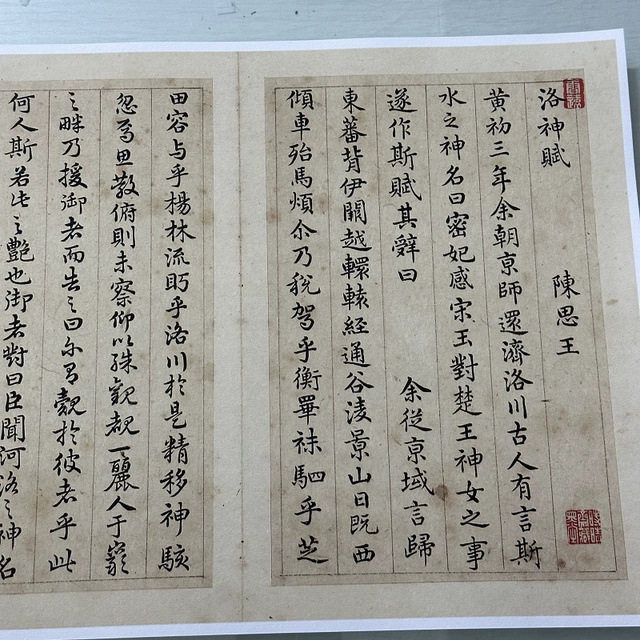 洛神賦 陳思王
黄初三年余朝京師還濟洛川古人有言斯
水之神名曰密妃感宋玉對楚王神女之事
遂作斯賦其辭曰 余從京域言歸
東蕃背伊闕越轘轅経通谷淩景山日既西
傾車殆馬煩尒乃稅駕乎衡皐秣駟乎芝
田容与乎楊林流眄乎洛川於是精移神駭
忽焉思散俯則未察仰以殊觀覩一麗人于巖
之畔乃援御者而告之曰尒有覿於彼者乎此
何人斯若此之艷也御者對曰臣聞河洛之神名